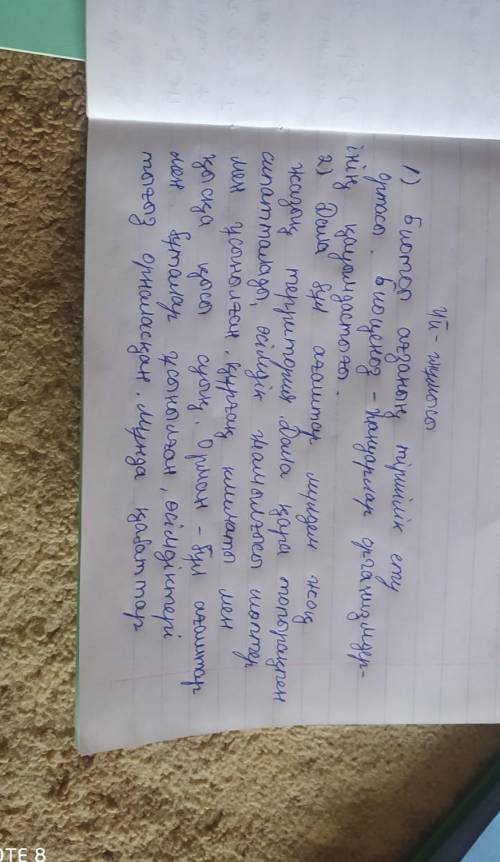 Үй-жұмысы
1) Биотоп ағзаның тіршілік ету
ортасы. Биоценоз - жануарлар организмдер-
інің қауымдастығы.
2) Дала бұл ағаштар мүлдем жоқ
жазық территория. Дала қара топырақпен
сипатталады, өсімдік жамылғысы шөптер
мен ұсынылған. құрғақ климаты мен
қысқа қысы суық. Орман - бұл ағаштар
мен бұталар ұсынылған, өсімдіктері
тығыз орналасқан. мұнда қабаттар
OTE 8